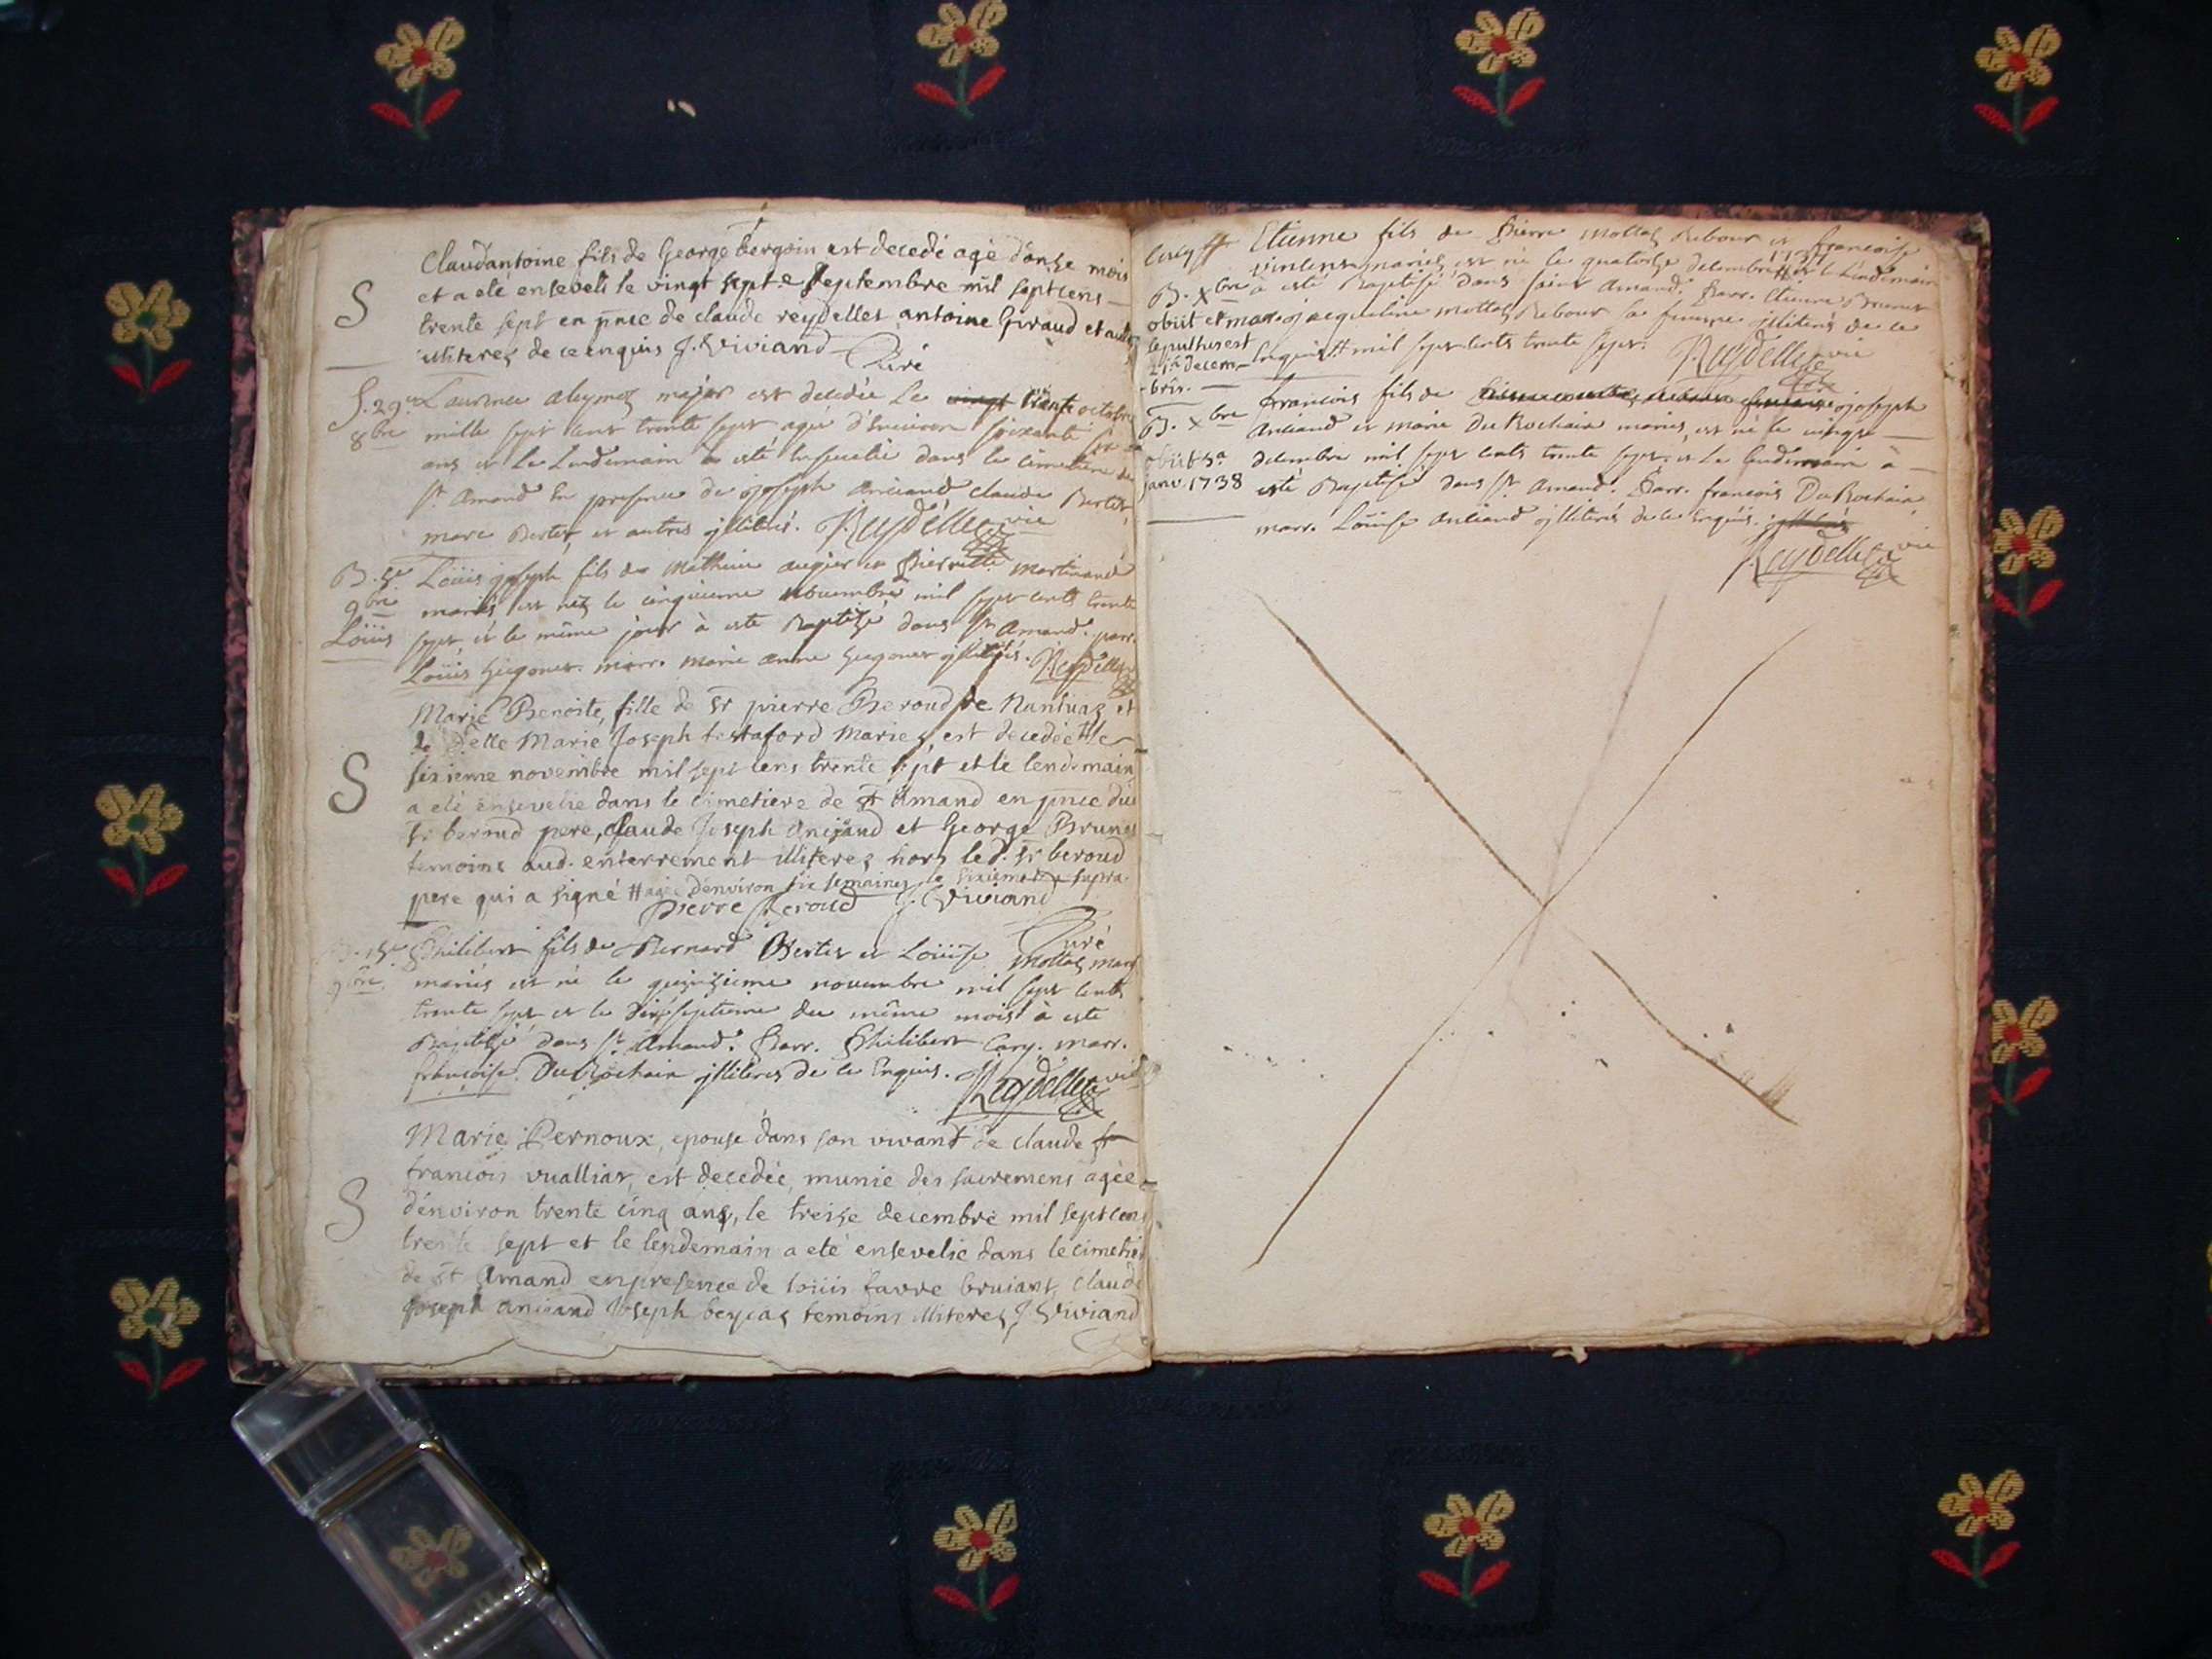 Claudantoine fils de George bergoin est decedé agé d'onze mois
et a eté enseveli le vingt sept.e septembre mil sept cens
S
trente sept en pnce de claude reydellet antoine Giraud et
illiterez de ce enquis J. Viviand
Curé
S. 29e Laurence majer est decedée Le trente octobre
8bre mille sept cent trente sept agée d'environ soixante
ans et Le Lendemain a esté ensevelie dans le cimetiere de
St. Amand En presence de joseph anciand claude Bertet
marc Bertet et autres jlliterés. Reydellet vic
B. 5e Loüis joseph fils de Mathieu augier et Pierrette martinand
9bre mariés est né le cinquieme novembre mil sept cents trente
Loüis sept et le même jour à esté Baptizé dans St. Amand. parr.
Loüis marr. marie anne jlliterés. Reydellet
Marie Benoite, fille de Sr pierre Beroud de Nantuaz et
de delle Marie Joseph testaford Mariez, est decedée # le
S
sixieme novembre mil sept cens trente sept et le lendemain
a eté ensevelie dans le cimetiere de St Amand en pnce dud
Sr beroud pere, claude Joseph anciand et George Brunet
temoins aud. enterrement illiterez hors led. Sr beroud
pere qui a signé # agée d'environ six semaines le sixieme supra.
Pierre Beroud J. Viviand
Curé
B. 15e Philibert fils de Bernard Bertet et Loüise mottaz
9bre. mariés est né le quinzieme novembre mil sept cents
trente sept et le dixseptieme du même mois à esté
Baptisé dans St. Amand. Parr. Philibert Cary. marr.
françoise DuRochain jlliterés de ce Enquis.
Reydellet vic
Marie Pernoux, epouse dans son vivant de claude
francois vualliat, est decedée, munie des sacremens agée
d'environ trente cinq ans, le treize decembre mil sept cens
S
trente sept et le lendemain a eté ensevelie dans le cimetiere
de St Amand en presence de loüis favre bruiant, claude
joseph anciand Joseph beycaz temoins illiterez J. Viviand
Etienne fils de Pierre mottaz Rebour et francoise
1737
mariez est né le quatorze decembre # et le Lendemain
B. Xbre a esté Baptisé dans saint Amand. Parr. Etienne Brunet
obiit et marr. jacqueline mottaz Rebour sa femme jlliterés de ce
sepultus est
21a decem- Enquis # mil sept cents trente sept. Reydellet vic
-bris.
francois fils de joseph
B. Xbre Anciand et marie DuRochain mariés, est né le vingt
obiit 3a decembre mil sept cents trente sept et Le lendemain à
janv. 1738 esté Baptisé dans St. Amand. Parr. francois DuRochain
marr. Loüise Anciand jlliterés de ce Enquis.
Reydellet vic